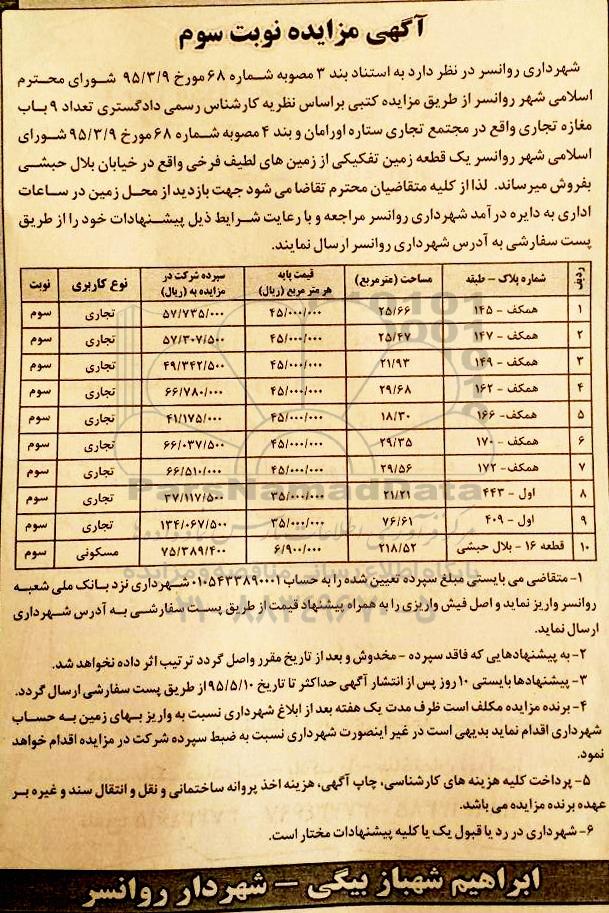 آگهی مزایده نوبت سوم
شهرداری روانسر در نظر دارد به استناد بند ۳ مصوبه شماره ۶۸ مورخ ۹۵/۳/۹ شورای محترم
اسلامی شهر روانسر از طریق مزایده کتبی براساس نظریه کارشناس رسمی دادگستری تعداد ۹ باب
مغازه تجاری واقع در مجتمع تجاری ستاره اورامان و بند ۴ مصوبه شماره ۶۸ مورخ ۹۵/۳/۹ شورای
اسلامی شهر روانسر یک قطعه زمین تفکیکی از زمین های لطیف فرخی واقع در خیابان بلال حبشی
بفروش میرساند. لذا از کلیه متقاضیان محترم تقاضا می شود جهت بازدید از محل زمین در ساعات
اداری به دایره درآمد شهرداری روانسر مراجعه و با رعایت شرایط ذیل پیشنهادات خود را از طریق
پست سفارشی به آدرس شهرداری روانسر ارسال نمایند.
ردیف شماره پلاک – طبقه مساحت (مترمربع) قیمت پایه هر متر مربع (ریال) سپرده شرکت در مزایده به (ریال) نوع کاربری نوبت
۱ همکف – ۱۴۵ ۲۵/۶۶ ۴۵/۰۰۰/۰۰۰ ۵۷/۷۳۵/۰۰۰ تجاری سوم
۲ همکف – ۱۴۷ ۲۵/۴۷ ۴۵/۰۰۰/۰۰۰ ۵۷/۳۰۷/۵۰۰ تجاری سوم
۳ همکف – ۱۴۹ ۲۱/۹۳ ۴۵/۰۰۰/۰۰۰ ۴۹/۳۴۲/۵۰۰ تجاری سوم
۴ همکف – ۱۶۲ ۲۹/۶۸ ۴۵/۰۰۰/۰۰۰ ۶۶/۷۸۰/۰۰۰ تجاری سوم
۵ همکف– ۱۶۶ ۱۸/۳۰ ۴۵/۰۰۰/۰۰۰ ۴۱/۱۷۵/۰۰۰ تجاری سوم
۶ همکف – ۱۷۰ ۲۹/۳۵ ۴۵/۰۰۰/۰۰۰ ۶۶/۰۳۷/۵۰۰ تجاری سوم
۷ همکف– ۱۷۲ ۲۹/۵۶ ۴۵/۰۰۰/۰۰۰ ۶۶/۵۱۰/۰۰۰ تجاری سوم
۸ اول – ۴۴۳ ۲۱/۲۱ ۳۵/۰۰۰/۰۰۰ ۳۷/۱۱۷/۵۰۰ تجاری سوم
۹ اول – ۴۰۹ ۷۶/۶۱ ۳۵/۰۰۰/۰۰۰ ۱۳۴/۰۶۷/۵۰۰ تجاری سوم
۱۰ قطعه ۱۶ – بلال حبشی ۲۱۸/۵۲ ۶/۹۰۰/۰۰۰ ۷۵/۳۸۹/۴۰۰ مسکونی سوم
ParsNamadData
۱– متقاضی می بایستی مبلغ سپرده تعیین شده را به حساب ۰۱۰۵۴۳۳۸۹۰۰۰۱ شهرداری نزد بانک ملی شعبه
روانسر واریز نماید و اصل فیش واریزی را به همراه پیشنهاد قیمت از طریق پست سفارشی به آدرس شهرداری
ارسال نماید.
۲– به پیشنهادهایی که فاقد سپرده – مخدوش و بعد از تاریخ مقرر واصل گردد ترتیب اثر داده نخواهد شد.
۳– پیشنهادها بایستی ۱۰ روز پس از انتشار آگهی حداکثر تا تاریخ ۹۵/۵/۱۰ از طریق پست سفارشی ارسال گردد.
۴– برنده مزایده مکلف است ظرف مدت یک هفته بعد از ابلاغ شهرداری نسبت به واریز بهای زمین به حساب
شهرداری اقدام نماید بدیهی است در غیر اینصورت شهرداری نسبت به ضبط سپرده شرکت در مزایده اقدام خواهد
نمود.
۵– پرداخت کلیه هزینه های کارشناسی، چاپ آگهی، هزینه اخذ پروانه ساختمانی و نقل و انتقال سند و غیره بر
عهده برنده مزایده می باشد.
۶– شهرداری در رد یا قبول یک یا کلیه پیشنهادات مختار است.
ابراهیم شهباز بیگی – شهردار روانسر